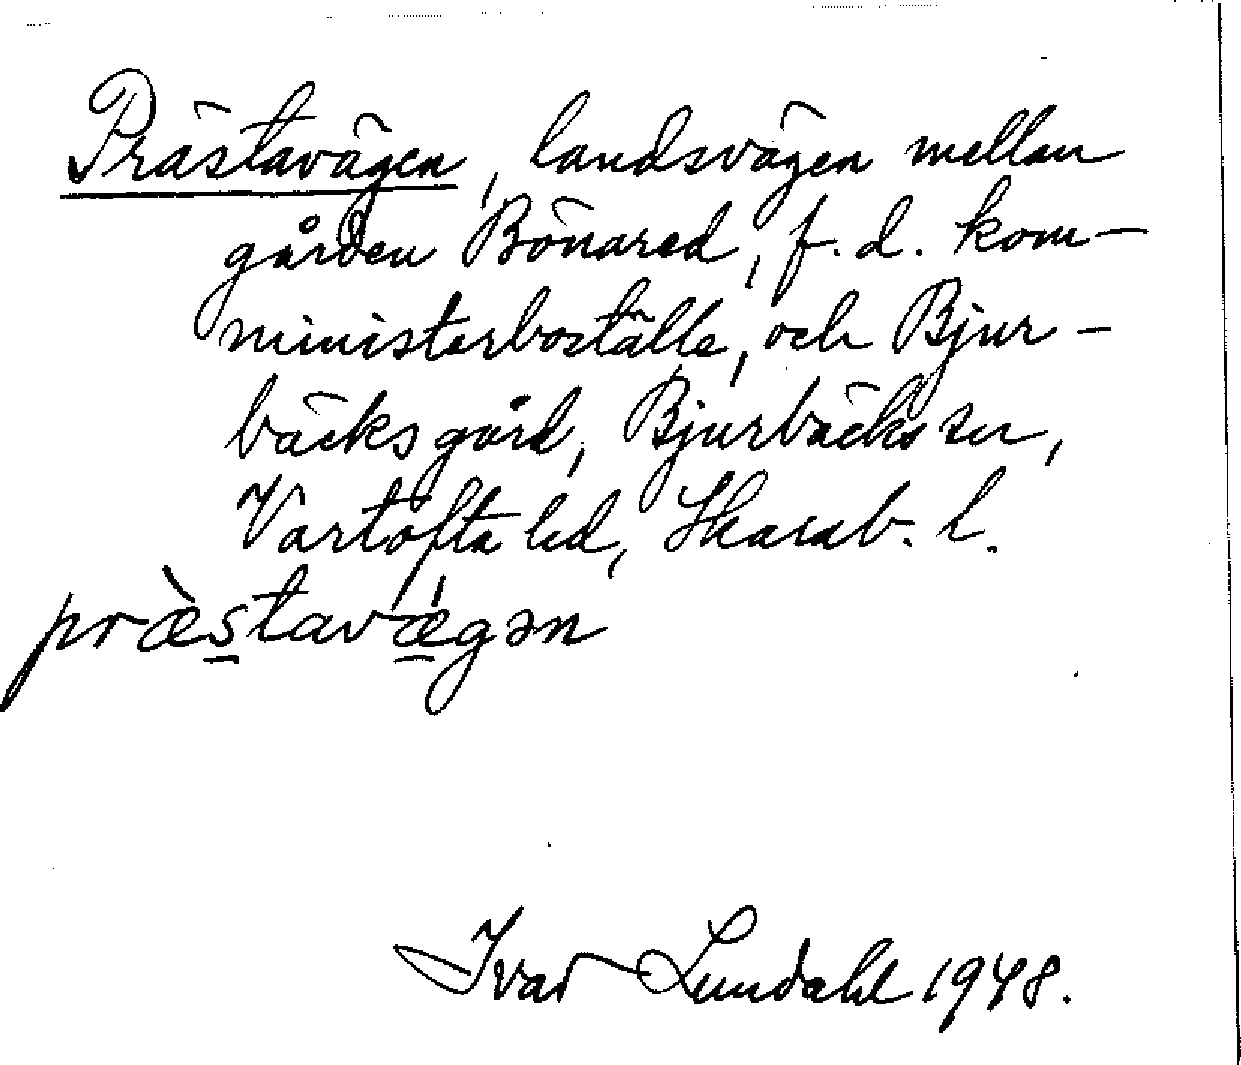 Prästavägen, landsvägen mellan
gården Bönared, f.d. kom-
ministerboställe, och Bjur-
bäcksgård, Bjurbäcks sn,
Vartofta hd, Skarab. l.
præ̀stavǽgən
Ivar Lundahl 1948.